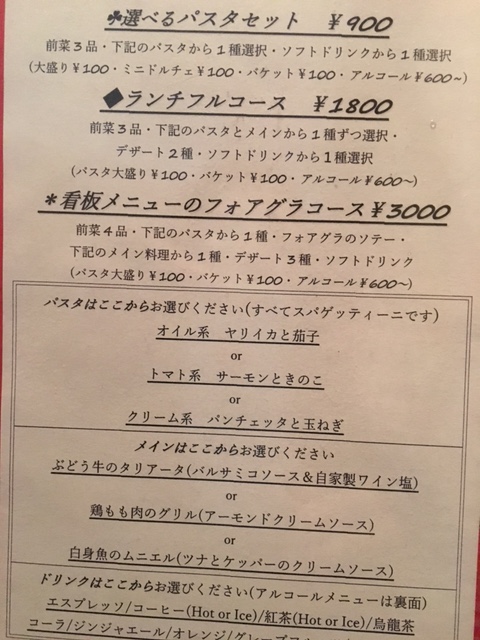 ☘選べるパスタセット　￥900
前菜3品・下記のパスタから1種選択・ソフトドリンクから1種選択
(大盛り￥100・ミニドルチェ￥100・バケット￥100・アルコール￥600～)
◆ランチフルコース　￥1800
前菜3品・下記のパスタとメインから1種ずつ選択・
デザート2種・ソフトドリンクから1種選択
(パスタ大盛り￥100・バケット￥100・アルコール￥600～)
＊看板メニューのフォアグラコース￥3000
前菜4品・下記のパスタから1種・フォアグラのソテー・
下記のメイン料理から1種・デザート3種・ソフトドリンク
(パスタ大盛り￥100・バケット￥100・アルコール￥600～)
パスタはここからお選びください(すべてスパゲッティーニです)
オイル系　ヤリイカと茄子
or
トマト系　サーモンときのこ
or
クリーム系　パンチェッタと玉ねぎ
メインはここからお選びください
ぶどう牛のタリアータ(バルサミコソース＆自家製ワイン塩)
or
鶏もも肉のグリル(アーモンドクリームソース)
or
白身魚のムニエル(ツナとケッパーのクリームソース)
ドリンクはここからお選びください(アルコールメニューは裏面)
エスプレッソ/コーヒー(Hot or Ice)/紅茶(Hot or Ice)/烏龍茶
コーラ/ジンジャエール/オレンジ/